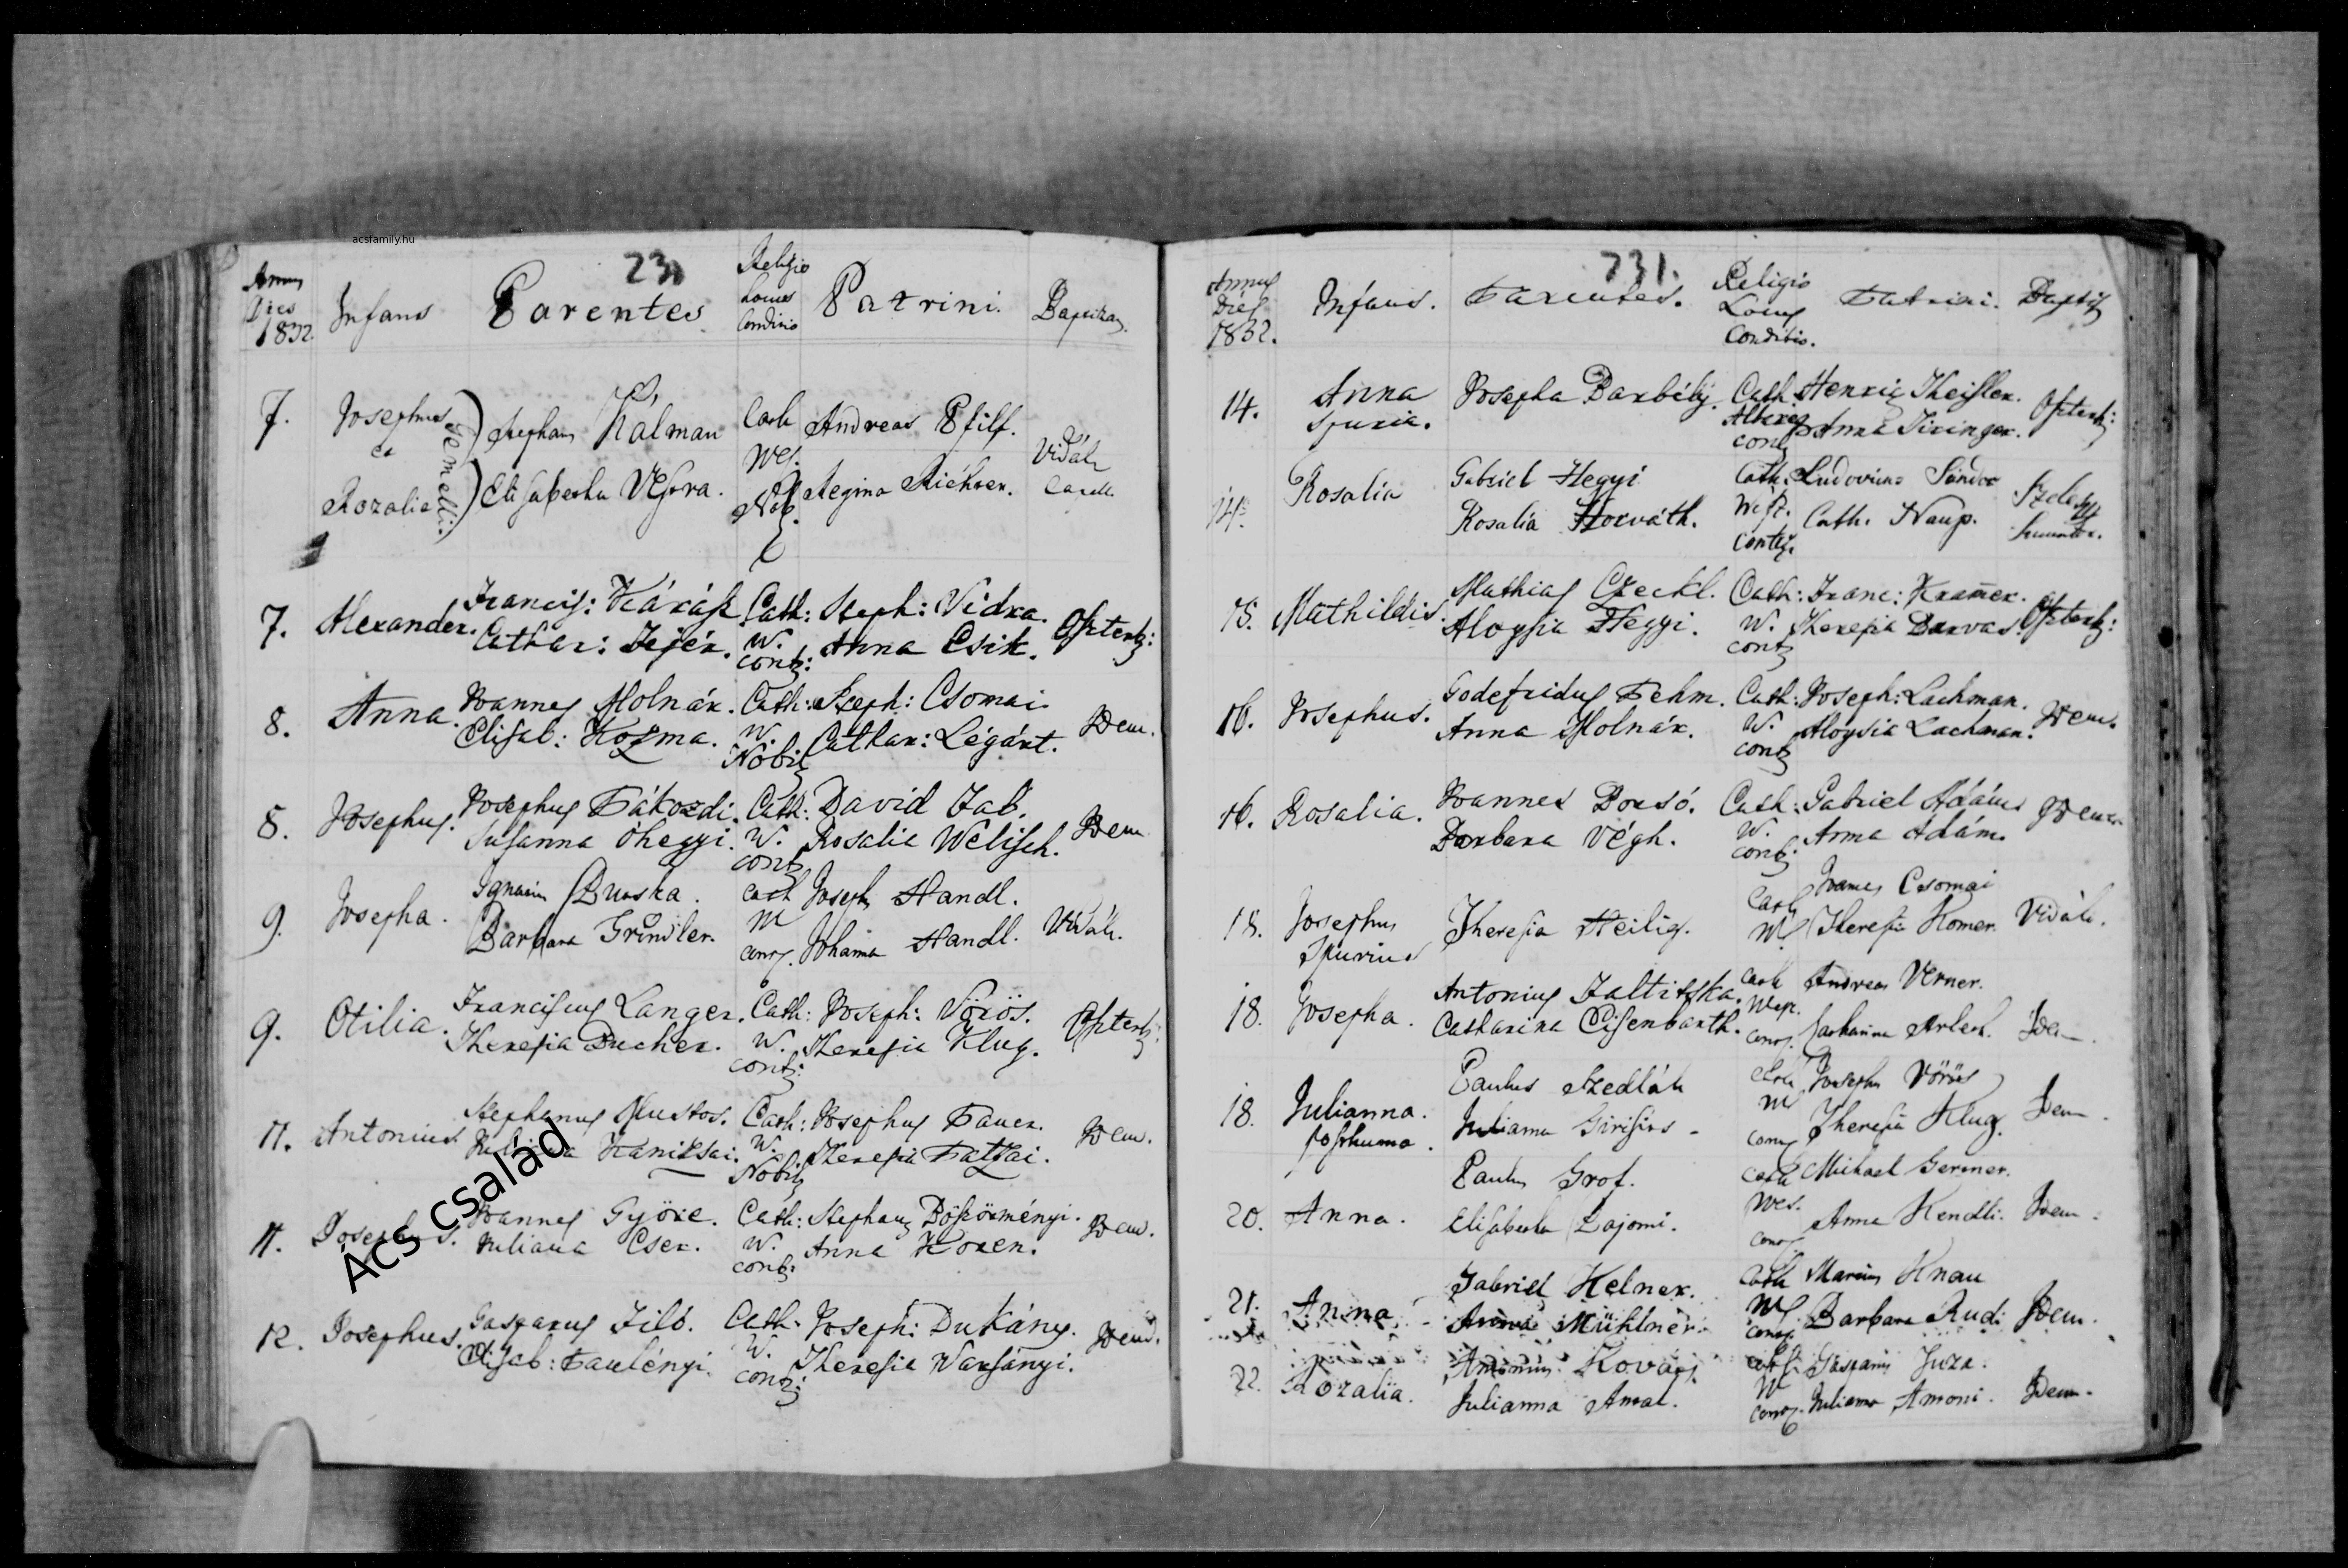 acsfamily.hu
Annus
Dies
1832
Infans
Parentes
Religio
Locus
Conditio
Patrini.
7.
Josephus
et
Rozalia
Gemelli
Stephan Kálman
Elisabetha Vepra.
Cath
Wes.
Nob.
Andreas Pfilf.
Regina Richter.
Vidák
Capell.
7. Alexander.
Francis: Kárász
Cathar: Fejér.
Cath:
W.
cont:
Steph: Vidra.
Anna Csik.
8. Anna.
Joannes Molnár.
Elisab: Kozma.
Cath:
W.
Nobil
Steph: Csomai.
Cathar: Légárt.
Idem.
8. Josephus.
Josephus Pákozdi.
Susanna Óhegyi.
Cath:
W.
cont
David Fab.
Rosalia Welisch.
Idem
9. Josepha.
Barbara Grindler.
Cath
W
Joseph Handl.
Johanna Handl.
Vidák.
9. Otilia.
Franciscus Langer.
Theresia Bucher.
Cath:
W.
cont:
Joseph: Vörös.
Theresia Klug.
11. Antonius
Stephanus Mustos.
Kaniksai.
Cath:
W.
Nobil
Josephus Pauer.
Theresia Patzai.
Idem.
11. Josephus.
Joannes Györe.
Juliana Cser.
Cath:
W.
cont:
Stephan Böszörményi.
Anna Koren.
Idem.
12. Josephus.
Gasparus Filó.
Elisab: Paulényi.
Cath.
W.
cont:
Joseph: Dukány.
Theresia Varsányi.
Idem.
Ács család
731.
Annus
Dies
1832.
Infans.
Parentes.
Religio
Locus
Conditio.
Patrini.
Baptis
14. Anna
Spuria.
Josepha Barbély.
Cath.
Henric Theisler.
Anna Siringer.
14. Rosalia
Gabriel Hegyi
Rosalia Horváth.
Cath.
Wesz.
Ludovicus Sándor
Cath. Naup.
15. Mathildis.
Mathias Czeckl.
Aloysia Hegyi.
Cath:
W.
cont
Franc: Kramer.
Theresia Darvas.
16. Josephus.
Godefridus Pehm.
Anna Molnár.
Cath:
W.
cont
Joseph: Lachman.
Aloysia Lachman.
Idem.
16. Rosalia.
Joannes Borsó.
Barbara Végh.
Cath:
W.
cont:
Gabriel Ádám
Anna Ádám.
Idem
18. Josephus
Spurius
Theresia Heilig.
Cath
W
Joannes Csomai
Theresia Komer.
Vidák.
18. Josepha.
Antonius Zaltitska.
Catharina Eisenbarth.
Cath
Wesp.
Andreas Verner.
Catharina Arlet.
Idem.
18. Julianna.
posthuma.
Paulus Szedlák
Julianna
Cath
W
Josephus Vörös
Theresia Klug.
Idem.
20. Anna.
Paulus Grof.
Elisabetha Lajomi.
Cath
Wes.
Michael Germer.
Anna Kendli.
Idem.
21. Anna.
Gabriel Kelner.
Anna Mühlner.
Cath
W
Knau
Barbara Rudi
Idem.
22. Rozalia.
Antonius Kovács.
Julianna Antal.
Cath
W
Gasparus
Julianna Amoni.
Idem.